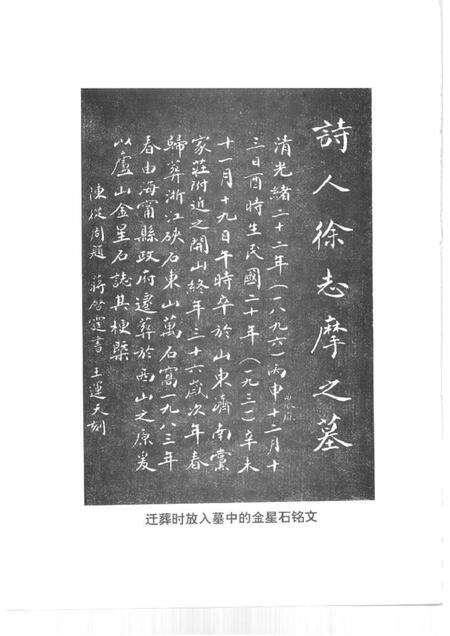 詩人徐志摩之墓
清光緒二十二年(一八九六)丙申十二月十
三日酉時生民國二十年(一九三一)辛未
十一月十九日午時卒於山東濟南黨
家莊附近之開山終年三十六歲次年春
歸葬浙江硤石東山萬石窩一九八三年
春由海甯縣政府遷葬於西山之原爰
以廬山金星石誌其梗槩
陳從周題 蔣啓霆書 王運天刻
迁葬时放入墓中的金星石铭文